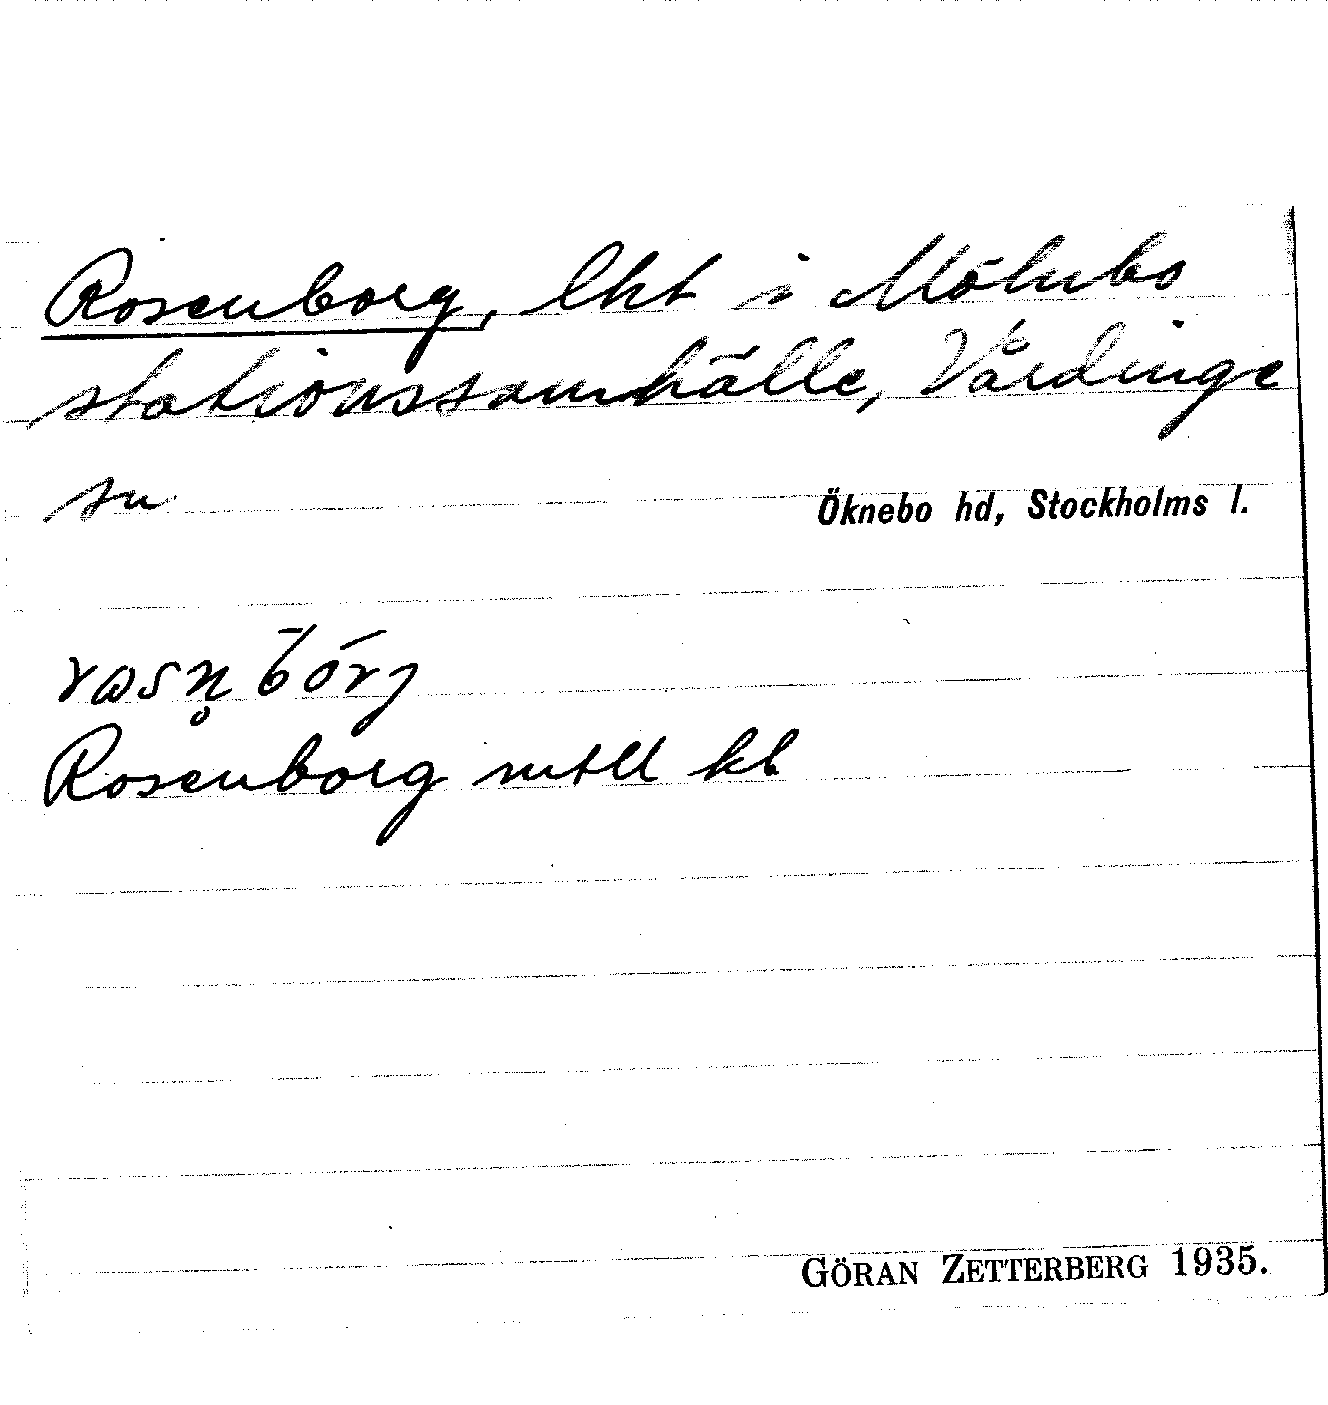 Rosenborg, lht i Mölnbo
stationssamhälle, Vårdinge
sn
Öknebo hd, Stockholms l.
Rosenborg mtll kb
GÖRAN ZETTERBERG 1935.